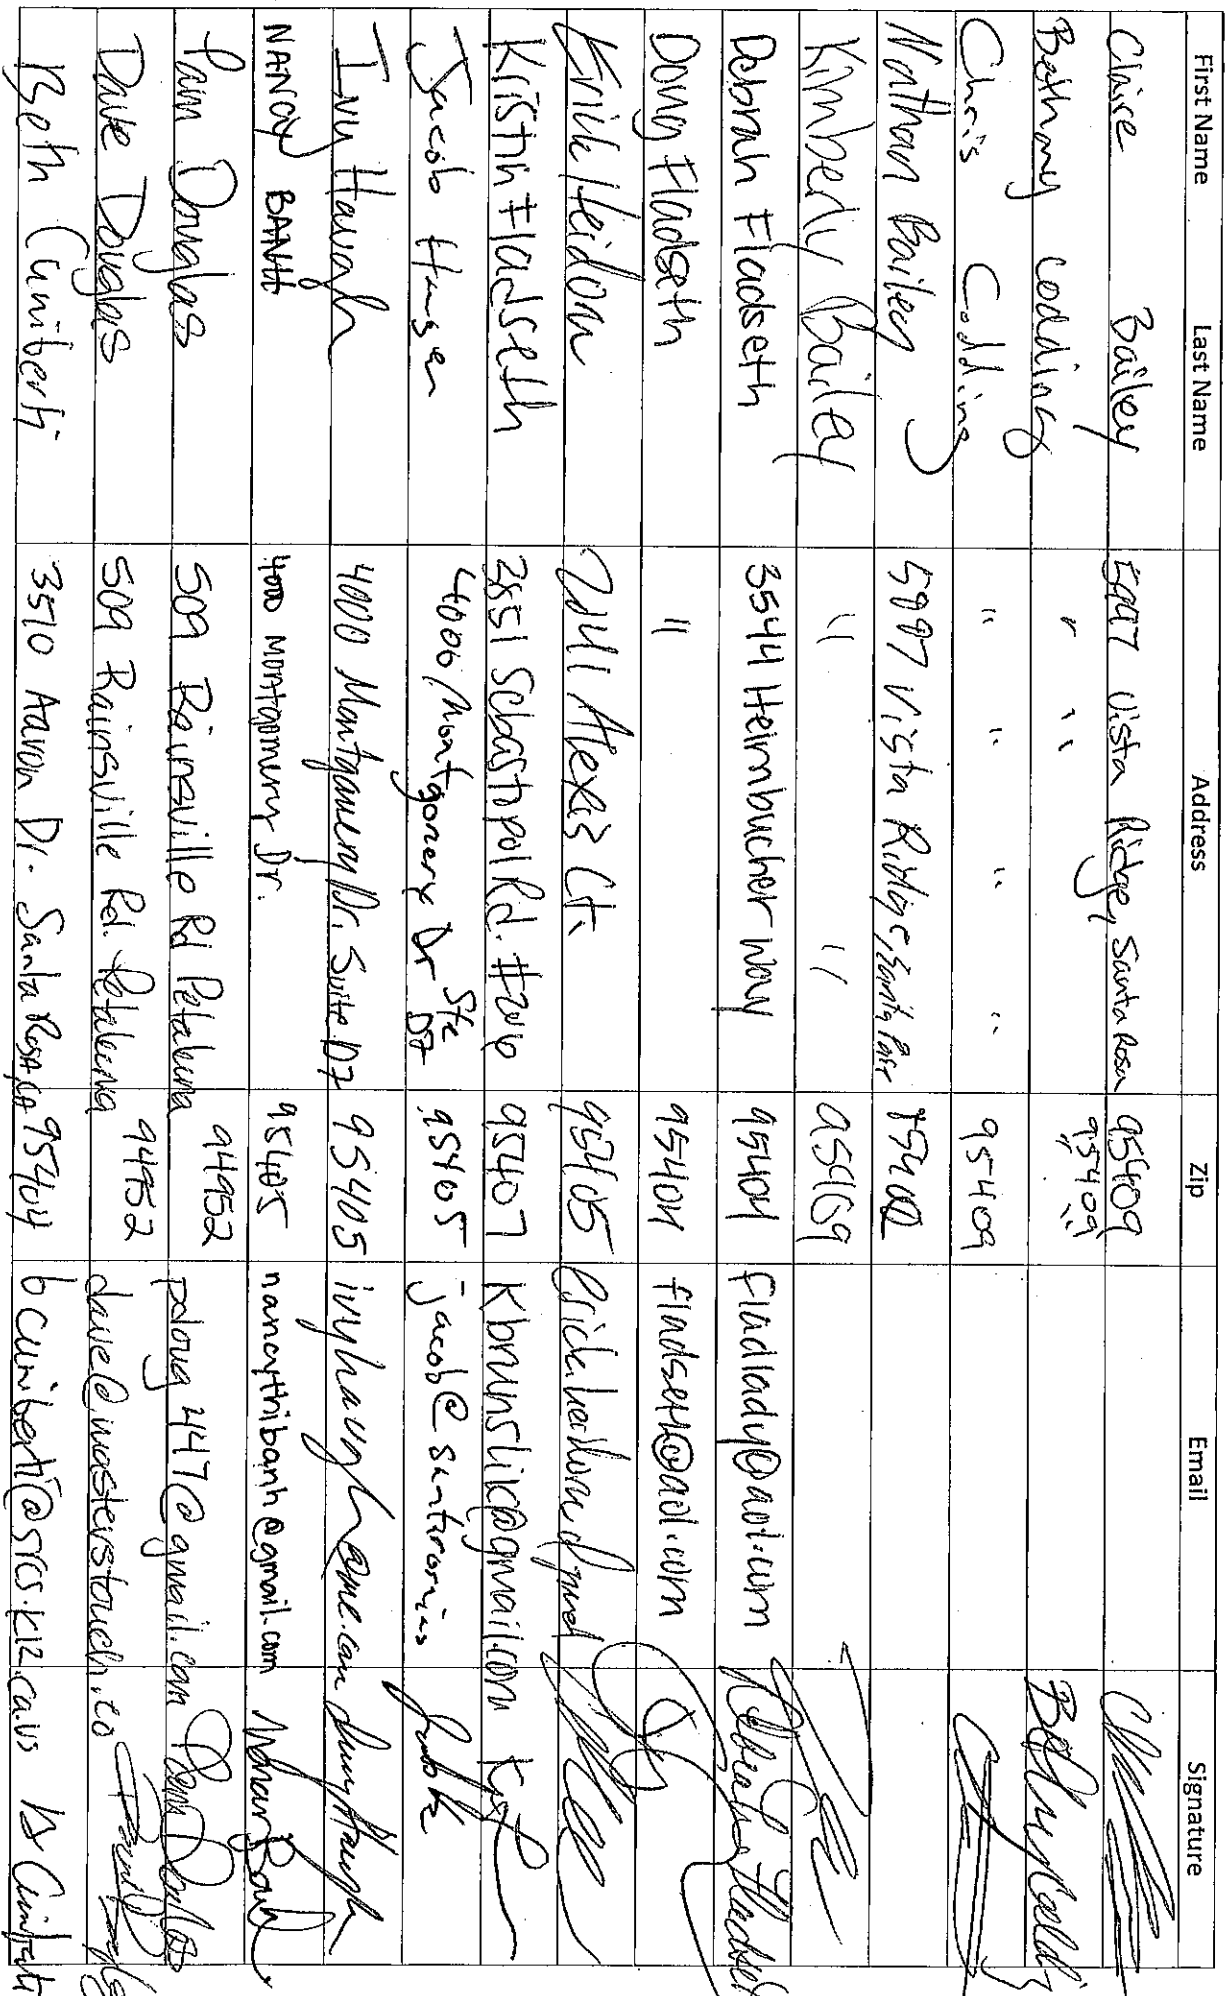 First Name Last Name Address Zip Email Signature
Claire Bailey 5997 Vista Ridge, Santa Rosa 95409
Bethany Codding " " 95409
Chris Codding " " " " 95409
Nathan Bailey 5997 Vista Ridge, Santa Rosa
Kimberly Bailey " " 95409
Debrah Fladseth 3544 Heirnbucher Way 95404 fladlady@aol.com
Doug Fladseth " 95404 fladseth@aol.com
Erick Heidorn Alexis Ct. 95405
Kristin Fladseth 2851 Sebastopol Rd. 95407 Kbrunslik@gmail.com
Jacob Hansen 4000 Montgomery Dr Ste D7 95405
Ivy Haugh 4000 Montgomery Dr. Suite D7 95405 ivyhaugh@me.com Ivy Haugh
NANCY BANH 4000 MONTGOMERY Dr. 95405 nancythibanh@gmail.com Nancy Banh
Pam Douglas 509 Rainsville Rd Petaluma 94952 pdoug447@gmail.com Pam Douglas
Dave Douglas 509 Rainsville Rd. Petaluma 94952 dave@masterstouch.co
Beth Cuniberti 3510 Aaron Dr. Santa Rosa, CA 95404 bcuniberti@srcs.k12.ca.us B Cuniberti